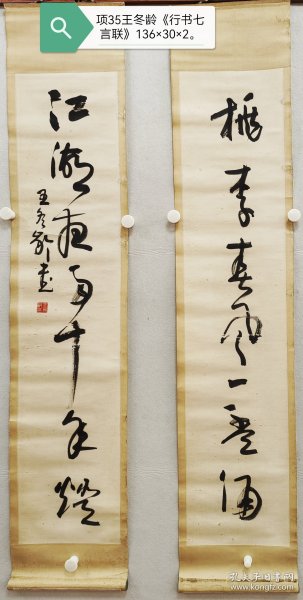 项35王冬龄《行书七
言联》136×30×2。
桃李春风一盏酒
江湖夜雨十年灯
王冬龄书
孔夫子旧书网
www.kongfz.com